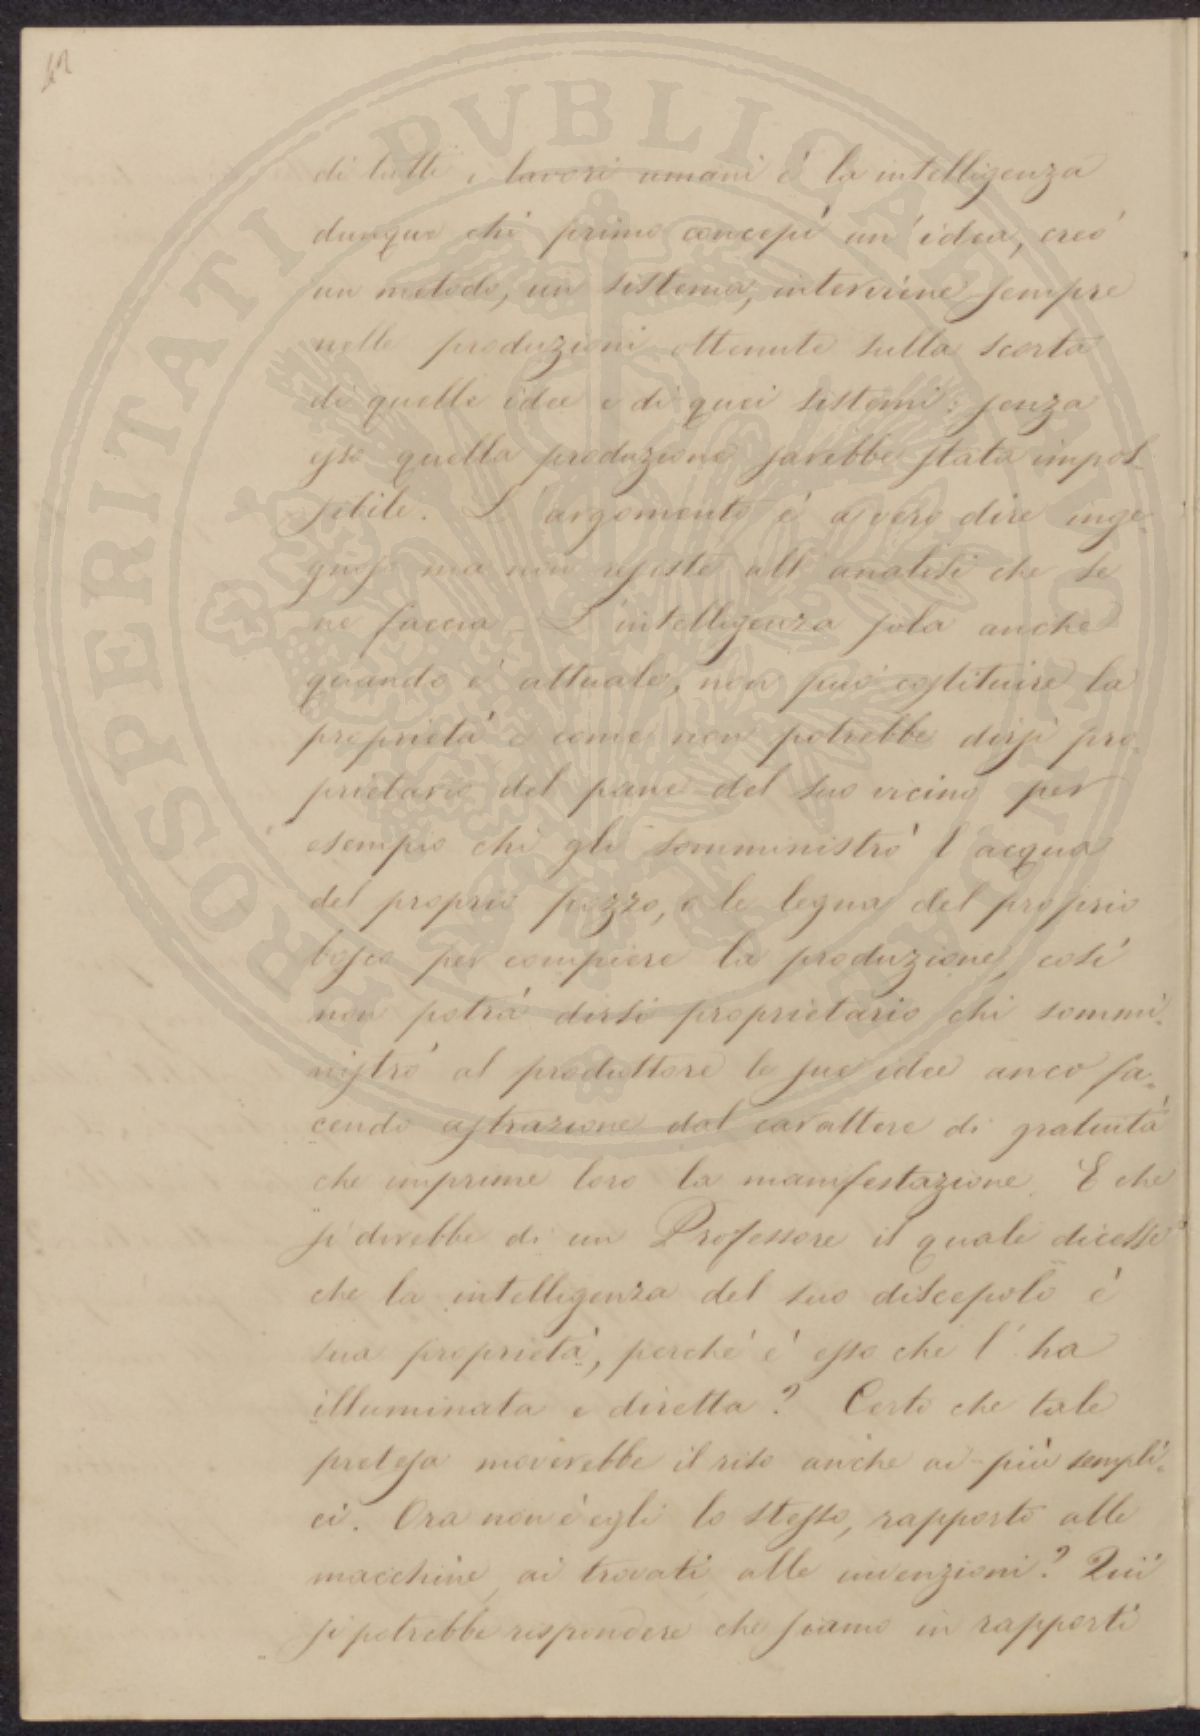 di tutti i lavori umani è la intelligenza
dunque chi primo concepì un'idea, creò
un metodo, un sistema, interviene sempre
nelle produzioni ottenute sulla scorta
di quelle idee e di quei sistemi: senza
esso quella produzione sarebbe stata impos-
sibile. L'argomento è a vero dire inge-
gnoso ma non resiste all'analisi che se
ne faccia – L'intelligenza sola anche
quando è attuale, non può costituire la
proprietà e come non potrebbe dirsi pro-
prietario del pane del suo vicino per
esempio chi gli somministrò l'acqua
del proprio pozzo, o le legna del proprio
bosco per compiere la produzione, così
non potrà dirsi proprietario chi sommi-
nistrò al produttore le sue idee anco fa-
cendo astrazione dal carattere di gratuità
che imprime loro la manifestazione. E che
si direbbe di un Professore il quale dicesse
che la intelligenza del suo discepolo è
sua proprietà, perché è esso che l'ha
illuminata e diretta? Certo che tale
pretesa moverebbe il riso anche ai più sempli-
ci. Ora non è egli lo stesso, rapporto alle
macchine, ai trovati, alle invenzioni? Quì
si potrebbe rispondere che siamo in rapporti
PROSPERITATI PVBLICAE